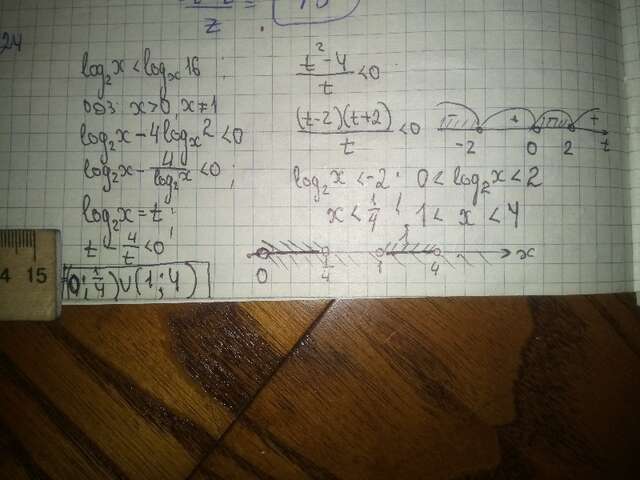 24
z
log₂x < logₓ16 ;
ОДЗ: x>0, x≠1
log₂x - 4logₓ2 < 0
log₂x - 4/log₂x < 0 ;
log₂x = t ;
t - 4/t < 0 ;
(0; 1/4) ∪ (1; 4)
(t² - 4)/t < 0
(t-2)(t+2)/t < 0
- + - +
-2 0 2 t
log₂x < -2 ; 0 < log₂x < 2
x < 1/4 ; 1 < x < 4
0 1/4 1 4 x
4 15